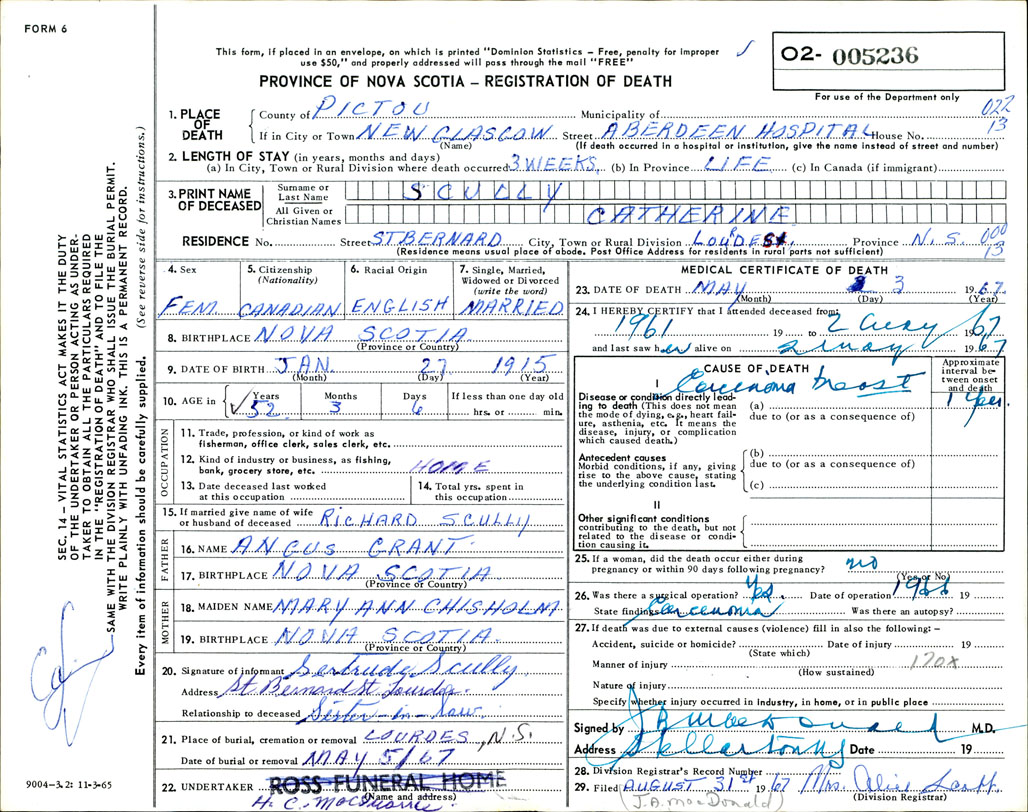 FORM 6
This form, if placed in an envelope, on which is printed "Dominion Statistics – Free, penalty for improper
use $50," and properly addressed will pass through the mail "FREE"
PROVINCE OF NOVA SCOTIA – REGISTRATION OF DEATH
O2- 005236
For use of the Department only
022
13
1. PLACE OF DEATH
County of PICTOU Municipality of
If in City or Town NEW GLASGOW Street ABERDEEN HOSPITAL House No.
(Name) (If death occurred in a hospital or institution, give the name instead of street and number)
2. LENGTH OF STAY (in years, months and days)
(a) In City, Town or Rural Division where death occurred 3 WEEKS. (b) In Province LIFE (c) In Canada (if immigrant)
3. PRINT NAME OF DECEASED
Surname or Last Name SCULLY
All Given or Christian Names CATHERINE
RESIDENCE No. Street ST BERNARD City, Town or Rural Division LOURDES, Province N.S.
000
13
(Residence means usual place of abode. Post Office Address for residents in rural parts not sufficient)
4. Sex FEM.
5. Citizenship (Nationality) CANADIAN
6. Racial Origin ENGLISH
7. Single, Married, Widowed or Divorced (write the word) MARRIED
8. BIRTHPLACE NOVA SCOTIA
(Province or Country)
9. DATE OF BIRTH JAN. 27 1915
(Month) (Day) (Year)
10. AGE in Years 52 Months 3 Days 6 If less than one day old
hrs. or min.
OCCUPATION
11. Trade, profession, or kind of work as
fisherman, office clerk, sales clerk, etc.
12. Kind of industry or business, as fishing,
bank, grocery store, etc. HOME
13. Date deceased last worked
at this occupation
14. Total yrs. spent in
this occupation
15. If married give name of wife
or husband of deceased RICHARD SCULLY
FATHER
16. NAME ANGUS GRANT
17. BIRTHPLACE NOVA SCOTIA
(Province or Country)
MOTHER
18. MAIDEN NAME MARY ANN CHISHOLM
19. BIRTHPLACE NOVA SCOTIA.
(Province or Country)
20. Signature of informant Gertrude Scully
Address St Bernard St Lourdes.
Relationship to deceased Sister-in-law.
21. Place of burial, cremation or removal LOURDES, N.S.
Date of burial or removal MAY 5/67
22. UNDERTAKER ROSS FUNERAL HOME
(Name and address)
MEDICAL CERTIFICATE OF DEATH
23. DATE OF DEATH MAY 3 1967.
(Month) (Day) (Year)
24. I HEREBY CERTIFY that I attended deceased from:
1961 19 to 2 May 1967
and last saw her alive on 2 May 1967
CAUSE OF DEATH
Approximate interval between onset and death
I
Carcinoma breast
1 year.
Disease or condition directly lead-
ing to death (This does not mean
the mode of dying, e.g., heart fail-
ure, asthenia, etc. It means the
disease, injury, or complication
which caused death.)
(a)
due to (or as a consequence of)
Antecedent causes
Morbid conditions, if any, giving
rise to the above cause, stating
the underlying condition last.
(b)
due to (or as a consequence of)
(c)
II
Other significant conditions
contributing to the death, but not
related to the disease or condi-
tion causing it.
25. If a woman, did the death occur either during
pregnancy or within 90 days following pregnancy? no
(Yes or No)
26. Was there a surgical operation? Yes. Date of operation 1966 19
State findings Carcinoma Was there an autopsy?
27. If death was due to external causes (violence) fill in also the following: –
Accident, suicide or homicide? Date of injury 19
(State which)
Manner of injury 170X
(How sustained)
Nature of injury
Specify whether injury occurred in industry, in home, or in public place
Signed by M.D.
Address Stellarton NS Date 19
28. Division Registrar's Record Number
29. Filed AUGUST 31st 1967 Mrs. Alice
(J.A. MacDonald) (Division Registrar)
SEC. 14 – VITAL STATISTICS ACT MAKES IT THE DUTY
OF THE UNDERTAKER OR PERSON ACTING AS UNDER-
TAKER TO OBTAIN ALL THE PARTICULARS REQUIRED
IN THE "REGISTRATION OF DEATH" AND TO FILE THE
SAME WITH THE DIVISION REGISTRAR WHO SHALL ISSUE THE BURIAL PERMIT.
WRITE PLAINLY WITH UNFADING INK. THIS IS A PERMANENT RECORD.
Every item of information should be carefully supplied. (See reverse side for instructions.)
9004-3.2: 11-3-65